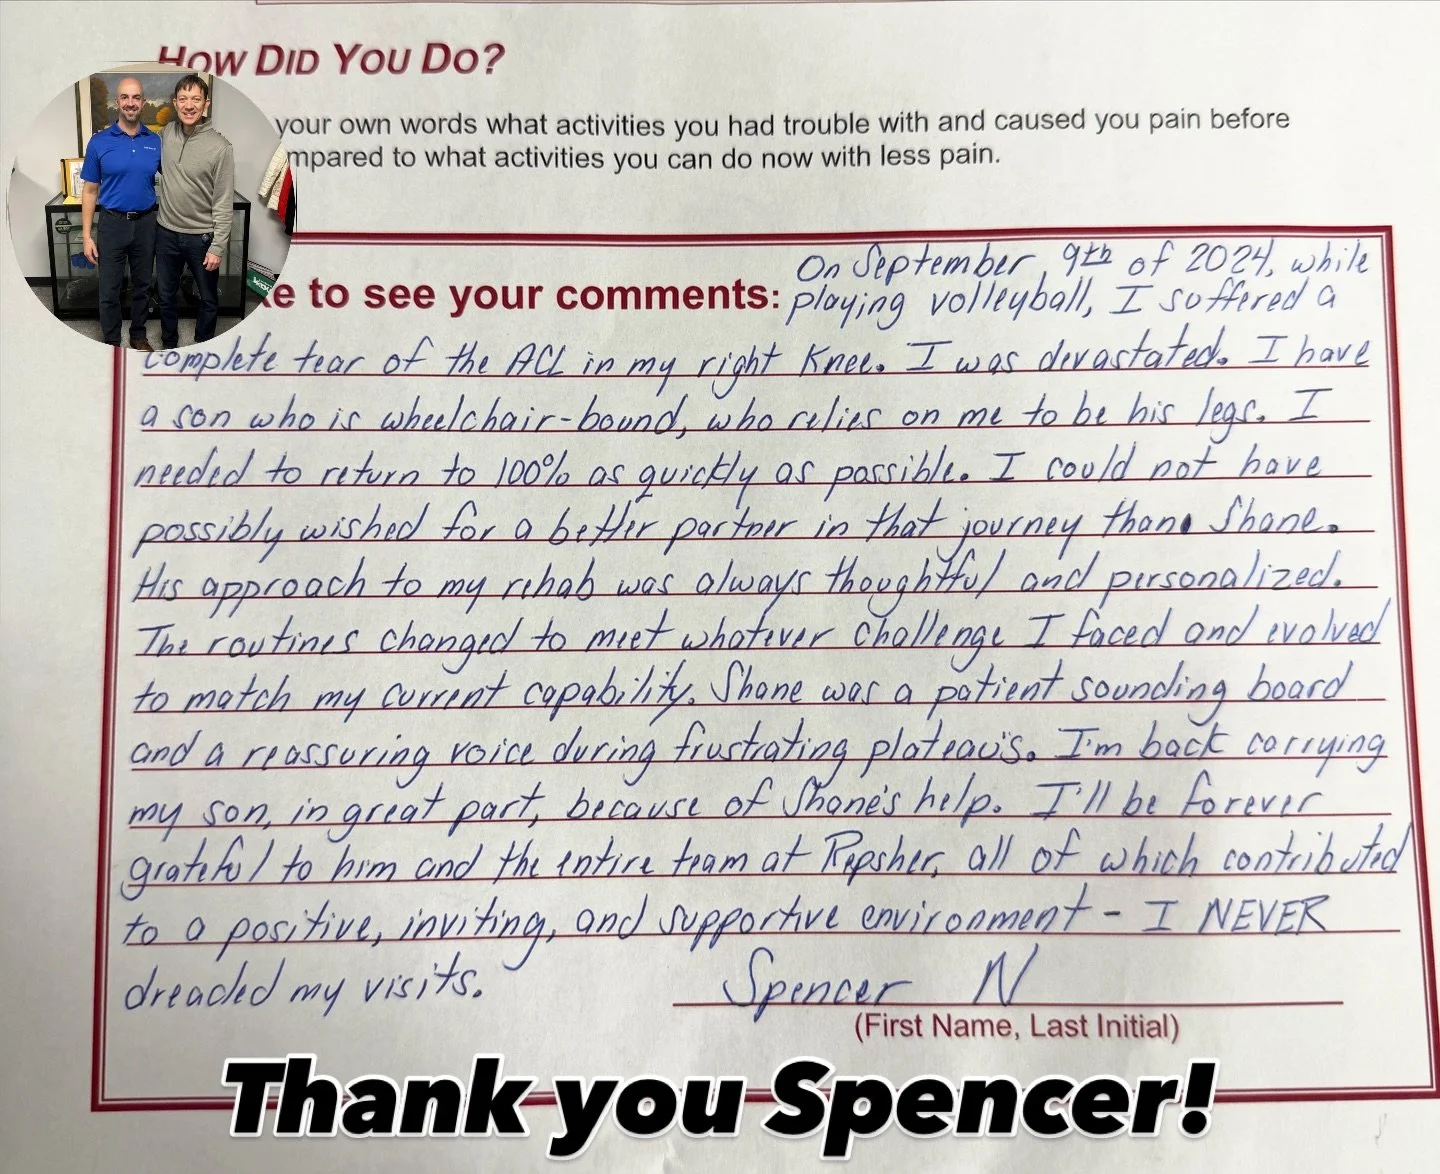 HOW DID YOU DO?
your own words what activities you had trouble with and caused you pain before
mpared to what activities you can do now with less pain.
On September, 9th of 2024, while
ke to see your comments: playing volleyball, I suffered a
complete tear of the ACL in my right Knee. I was devastated. I have
a son who is wheelchair-bound, who relies on me to be his legs. I
needed to return to 100% as quickly as possible. I could not have
possibly wished for a better partner in that journey than Shane.
His approach to my rehab was always thoughtful and personalized.
The routines changed to meet whatever challenge I faced and evolved
to match my current capability. Shane was a patient sounding board
and a reassuring voice during frustrating plateau's. I'm back carrying
my son, in great part, because of Shane's help. I'll be forever
grateful to him and the entire team at Repsher, all of which contributed
to a positive, inviting, and supportive environment - I NEVER
dreaded my visits. Spencer N
(First Name, Last Initial)
Thank you Spencer!